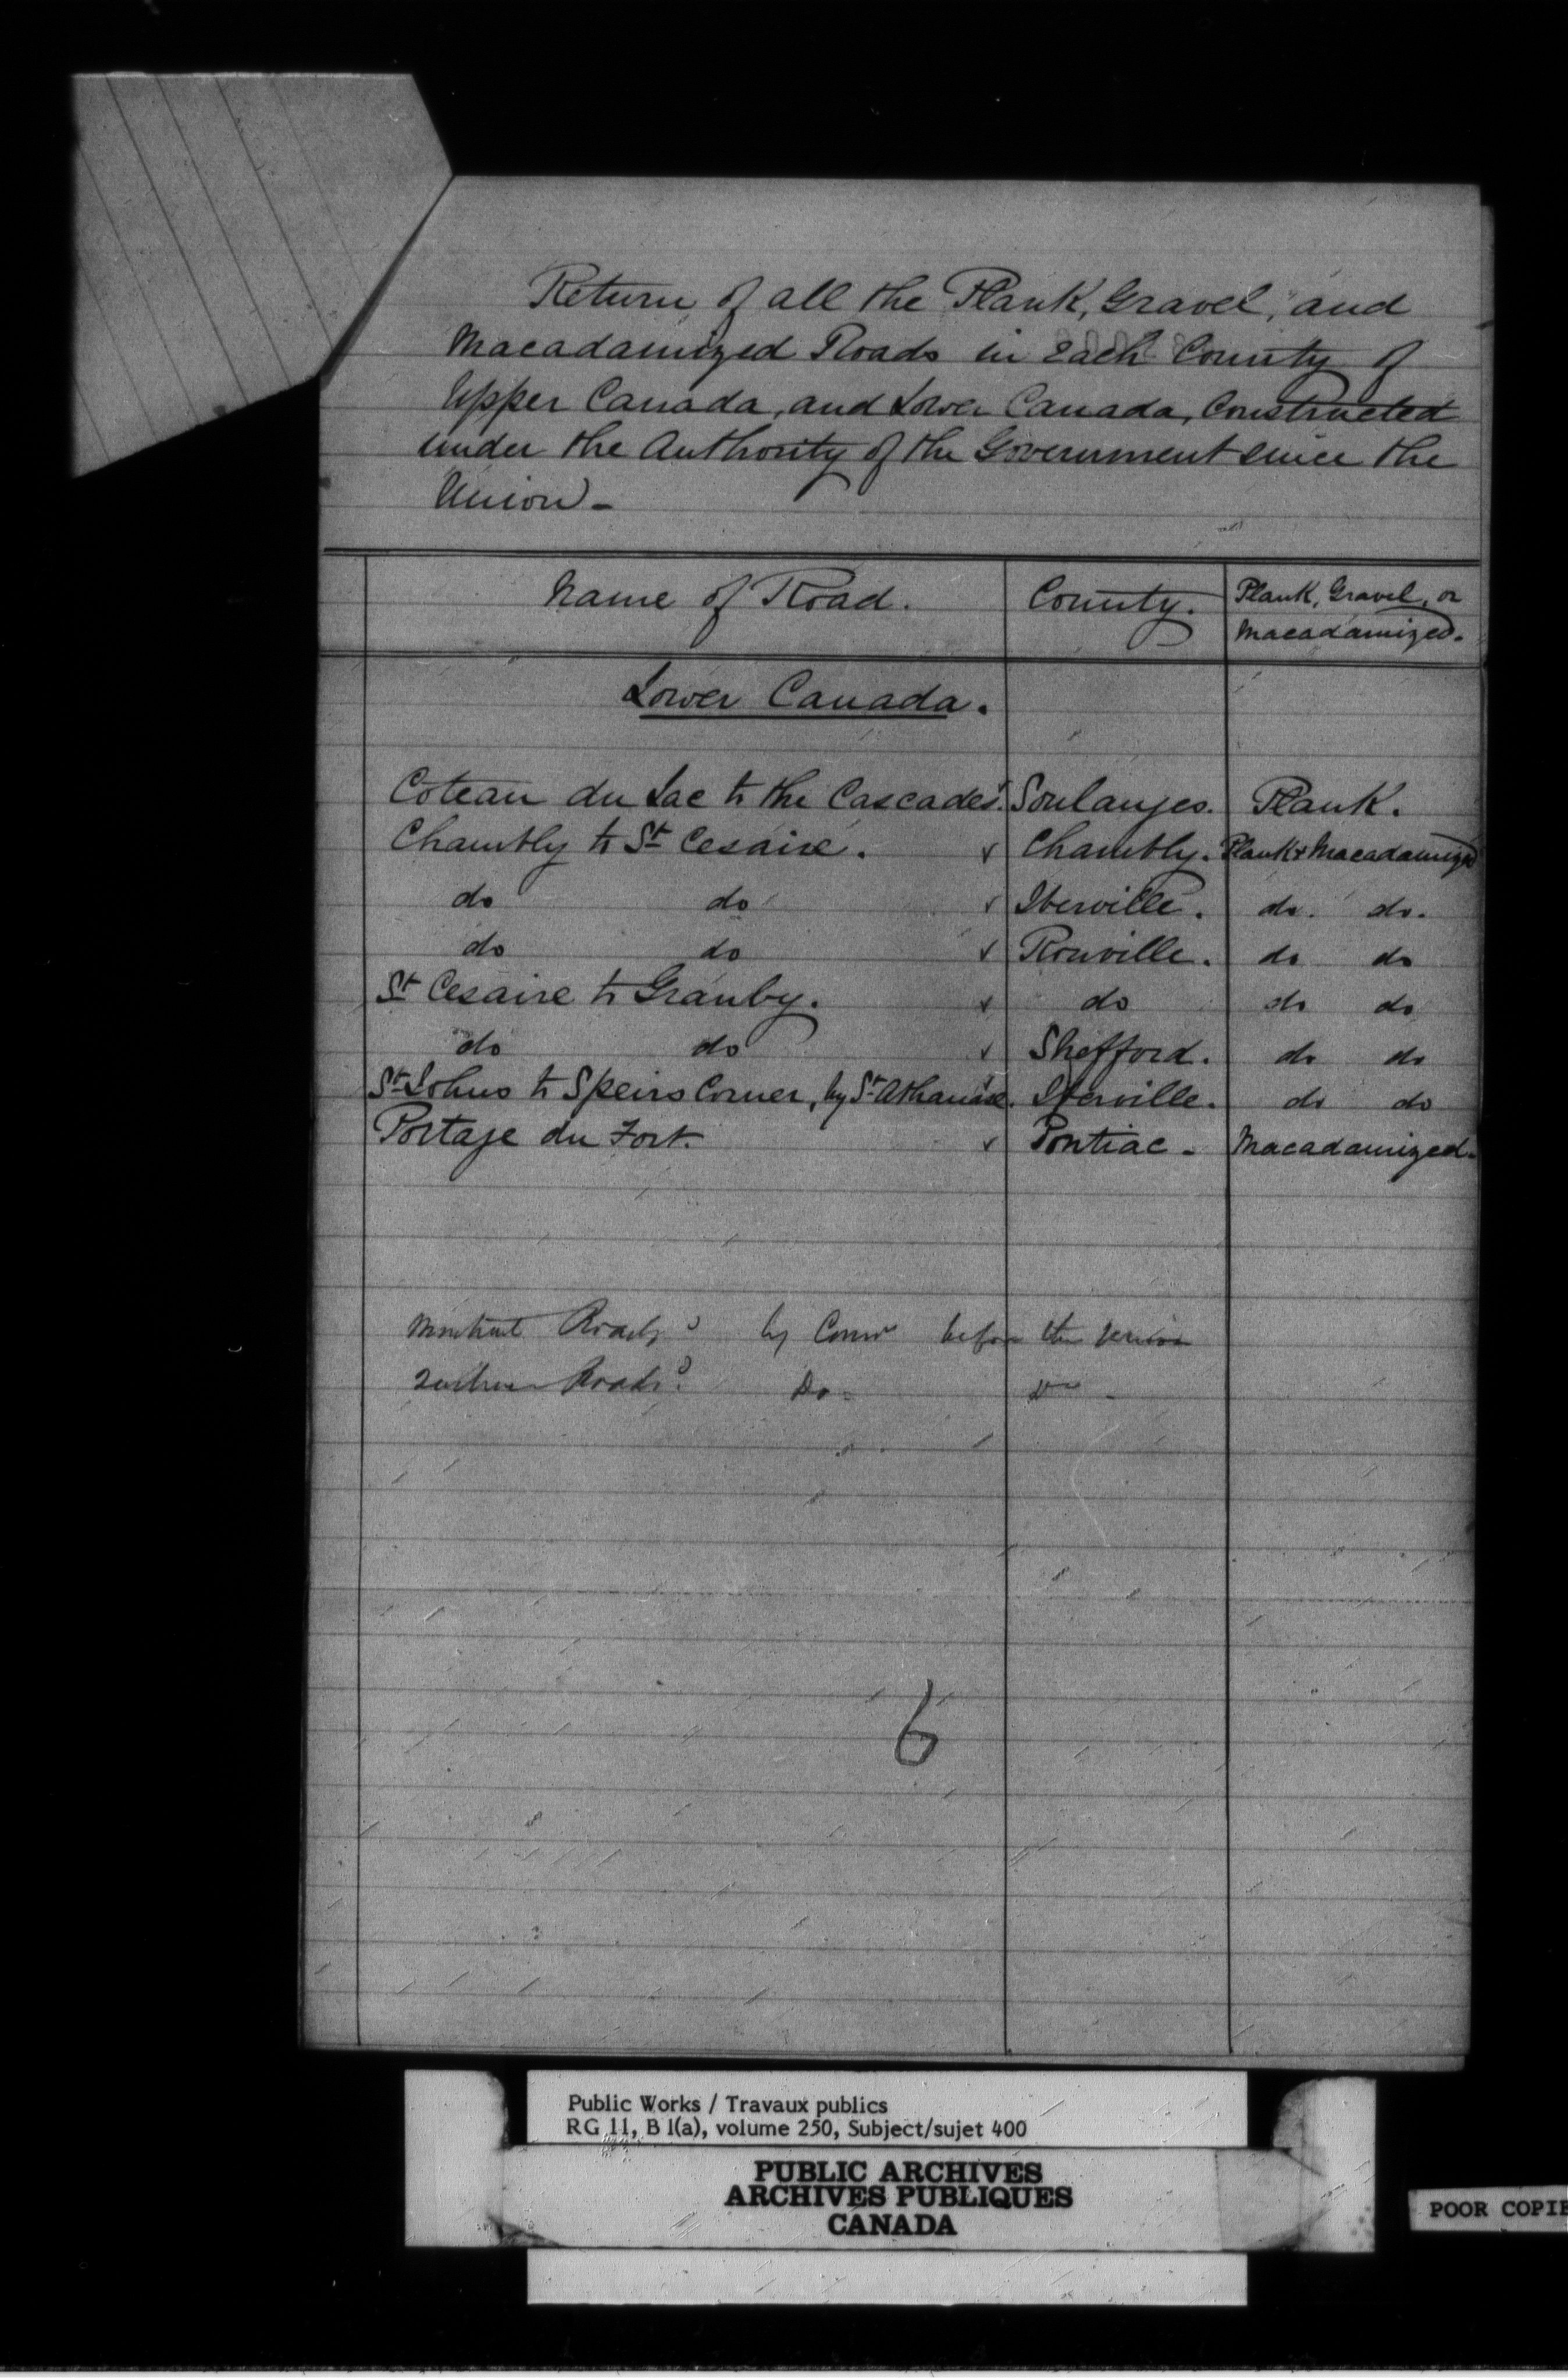 Return of all the Plank, Gravel, and
Macadamized Roads in Each County of
Upper Canada, and Lower Canada, Constructed
under the Authority of the Government since the
Union -
Name of Road. County. Plank, Gravel, or
Macadamized.
Lower Canada.
Côteau du Lac to the Cascades. Soulanges. Plank.
Chambly to St Cesaire. Chambly. Plank & Macadamized
do do Iberville. do. do.
do do Rouville. do do
St Cesaire to Granby. do do do
do do Shefford. do do
St Johns to Speirs Corner, by St Athanase. Iberville. do do
Portage du Fort. Pontiac - Macadamized.
Montreal Roads? by Comrs before the Union
Roads? Do - Do -
6
Public Works / Travaux publics
RG 11, B 1(a), volume 250, Subject/sujet 400
PUBLIC ARCHIVES
ARCHIVES PUBLIQUES
CANADA
POOR COPIE